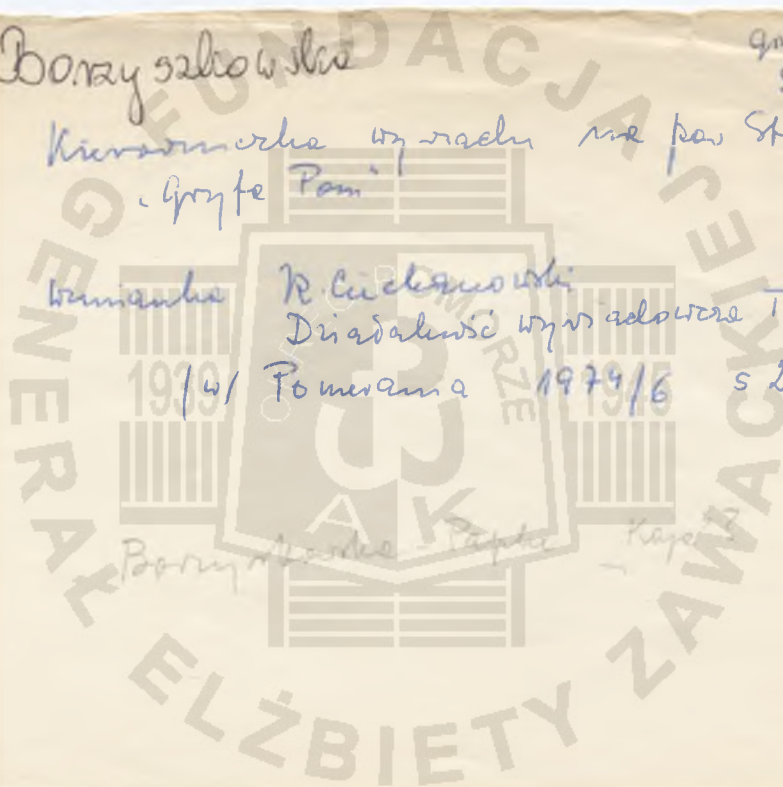 Borzyszkowska
Kierowniczka wywiadu na pow St
"Gryfa Pom"
wzmianka R. Ciechanowski
Działalność wywiadowcza T
/w/ Pomerania 1974/6 s 2
Borzyszkowska - Papke "Kaja"?
FUNDACJA GENERAŁ ELŻBIETY ZAWACKIEJ
1939 1945
AK